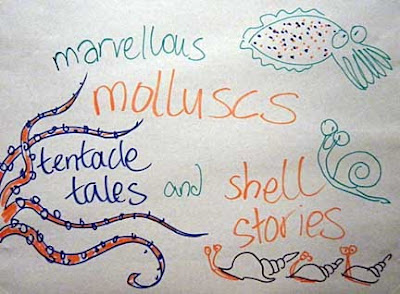 marvellous
molluscs
tentacle
tales and shell
stories